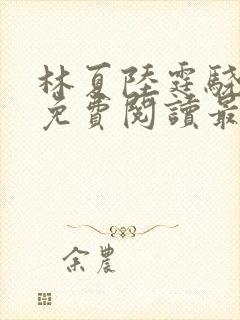 林夏陸霆驍
免費閱讀最
余農